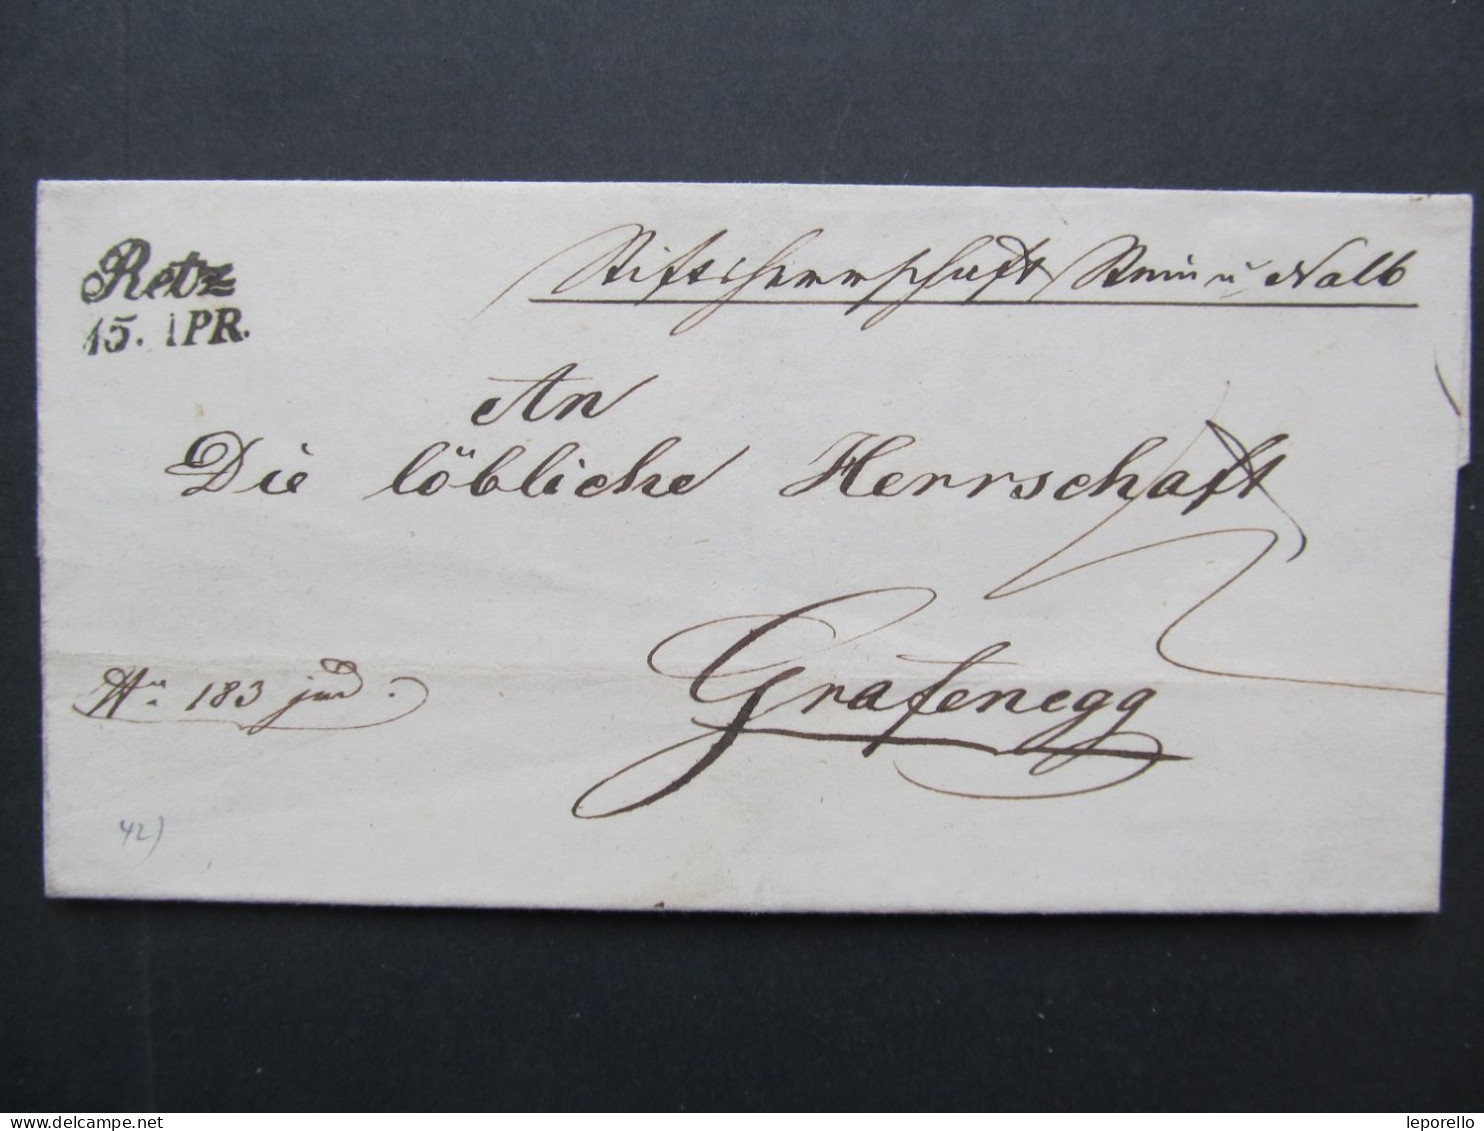 Retz
15. APR.
Stiftsherrschaft Stein u Nalb
An
Die löbliche Herrschaft
Grafenegg
No 183 jud.
42)
www.delcampe.net
leporello